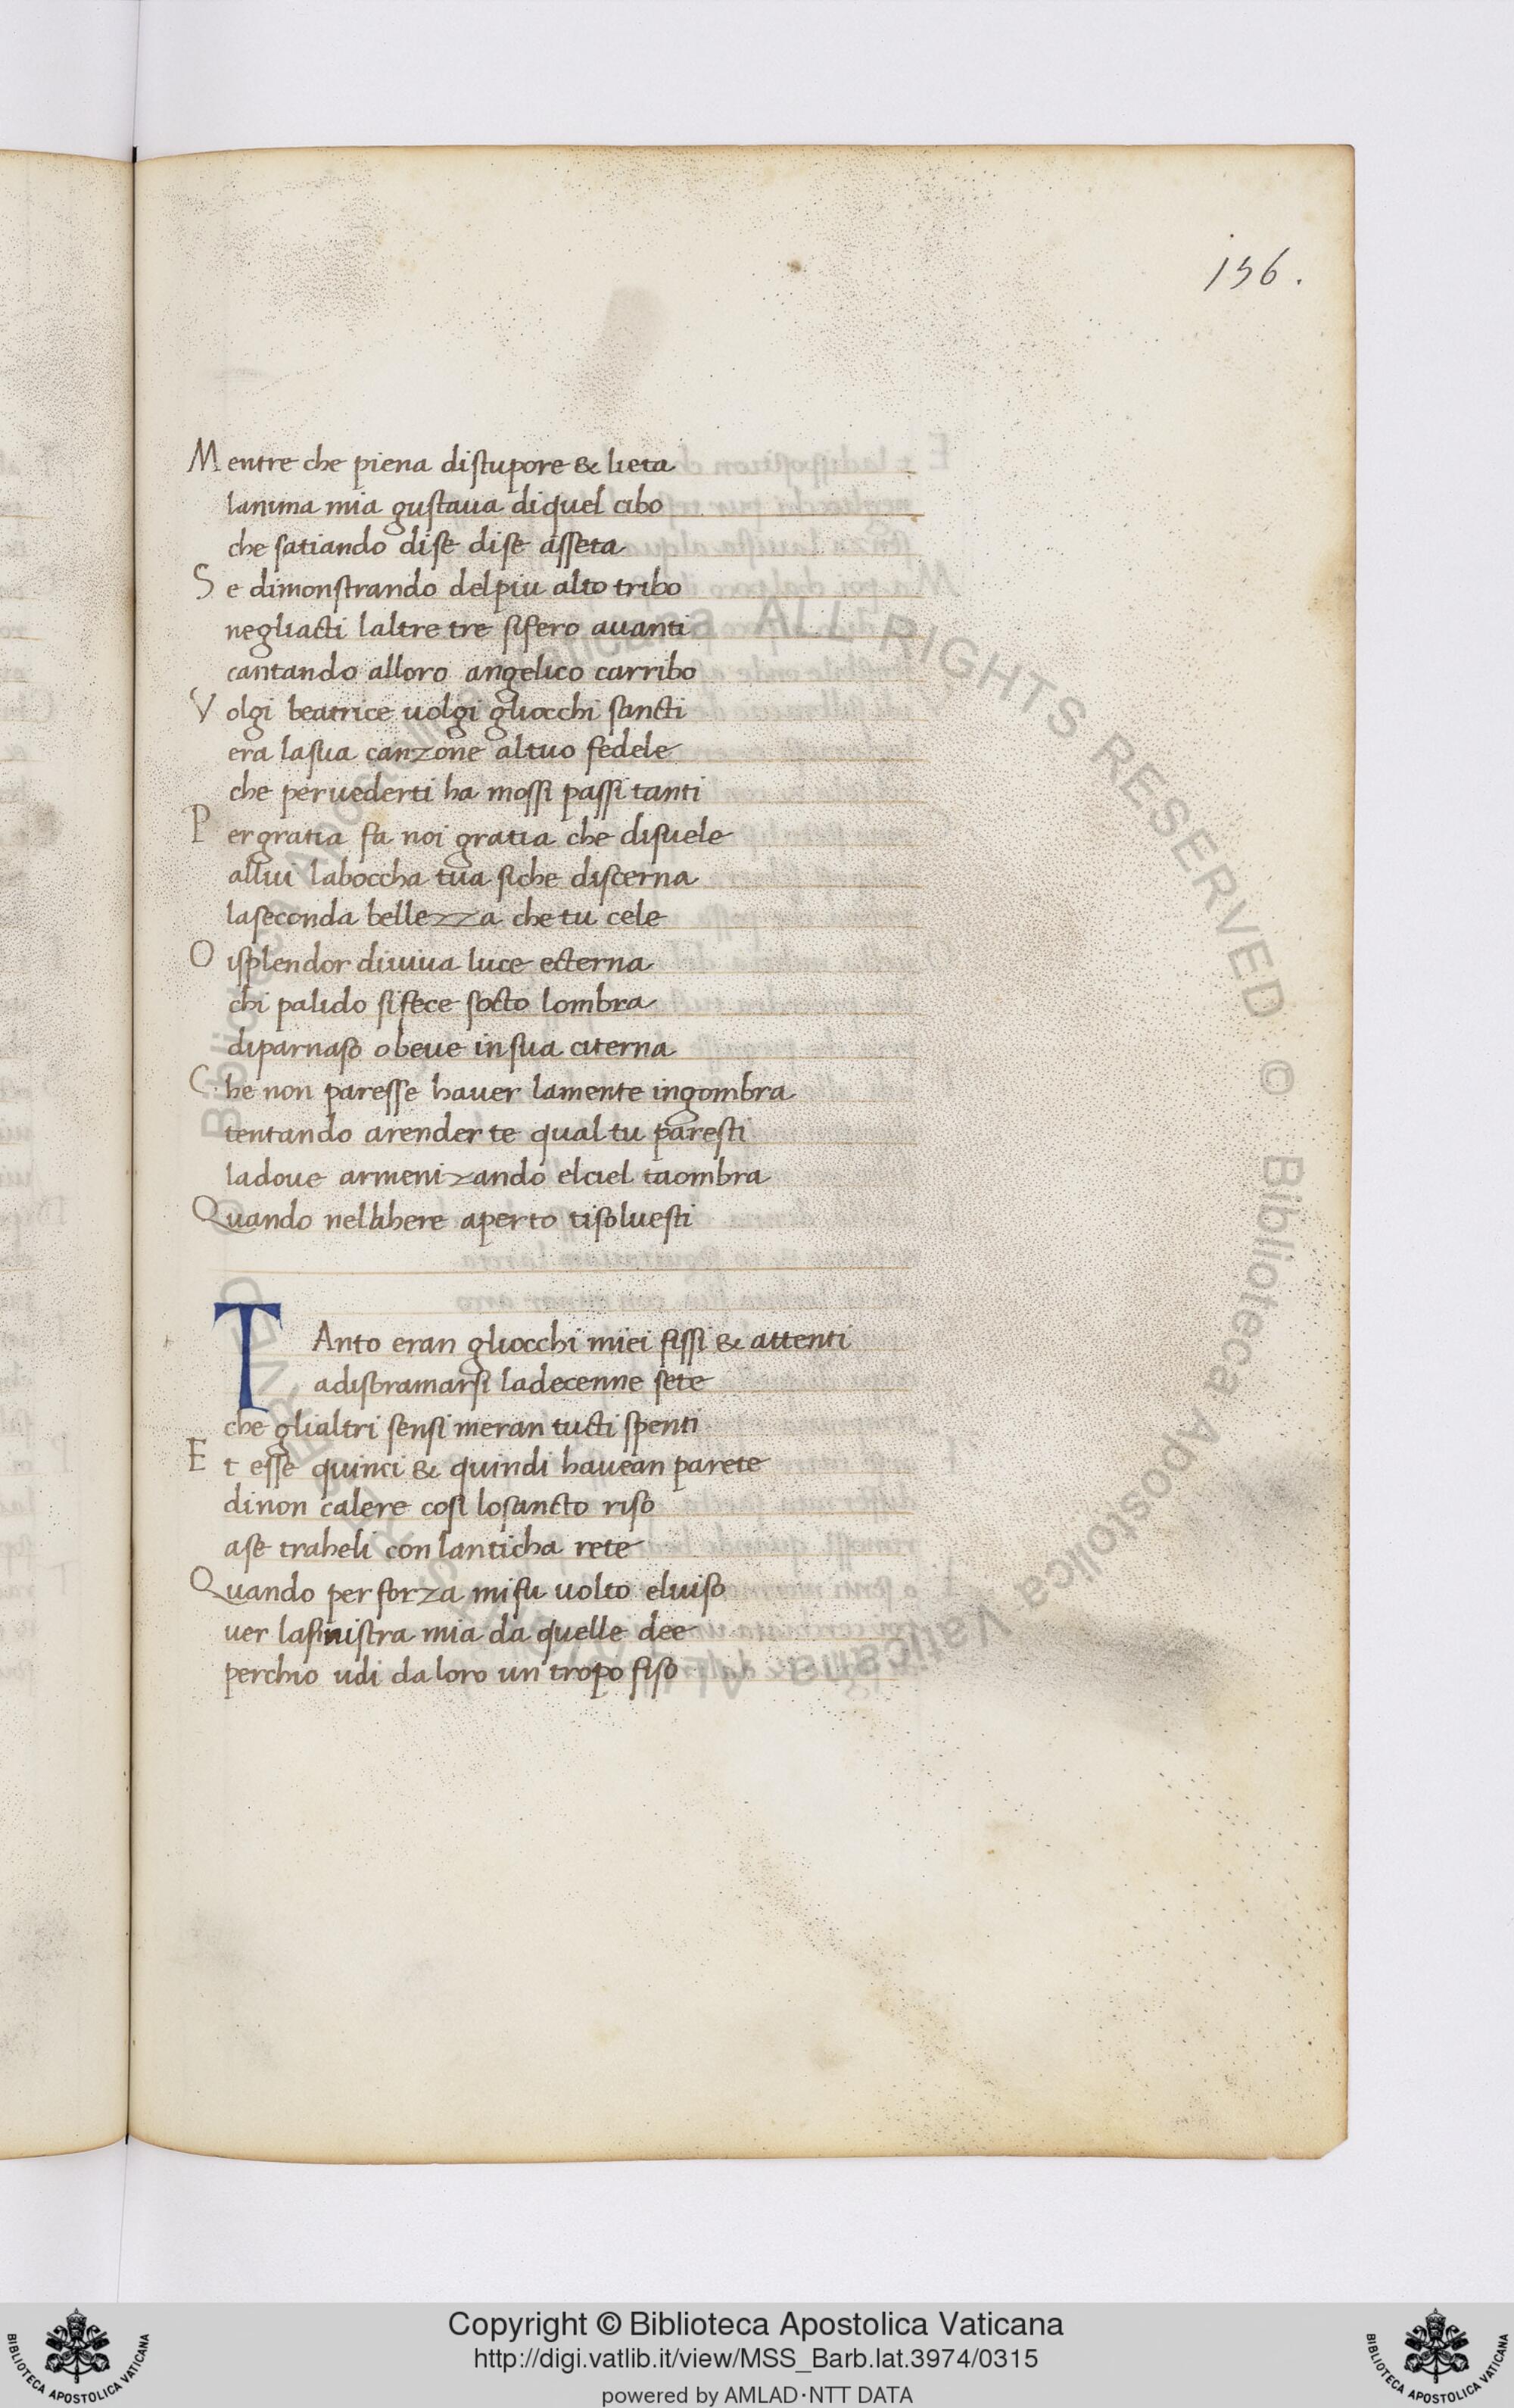 156.
Mentre che piena distupore & lieta
lanima mia gustaua diquel cibo
che satiando dise dise asseta
Se dimonstrando delpiu alto tribo
negliacti laltre tre sifero auanti
cantando alloro angelico carribo
Volgi beatrice uolgi gliocchi sancti
era lasua canzone altuo fedele
che peruederti ha mossi passi tanti
Per gratia fa noi gratia che disuele
allui laboccha tua siche discerna
laseconda bellezza che tu cele
O isplendor diuiua luce ecterna
chi palido sifece socto lombra
diparnaso obeue insua citerna
Che non paresse hauer lamente ingombra
tentando arender te qual tu paresti
ladoue armenizando elciel taombra
Quando nellihere aperto tisoluesti
TAnto eran gliocchi miei fissi & attenti
adisbramarsi ladecenne sete
che glialtri sensi meran tucti spenti
Et esse quinci & quindi hauean parete
dinon calere cosi losancto riso
ase traheli con lanticha rete
Quando per forza mifu uolto eluiso
uer lasinistra mia da quelle dee
perchio udi da loro un tropo fiso
Biblioteca Apostolica Vaticana ALL RIGHTS RESERVED © Biblioteca Apostolica Vaticana
Copyright © Biblioteca Apostolica Vaticana
http://digi.vatlib.it/view/MSS_Barb.lat.3974/0315
powered by AMLAD·NTT DATA
BIBLIOTECA APOSTOLICA VATICANA
BIBLIOTECA APOSTOLICA VATICANA